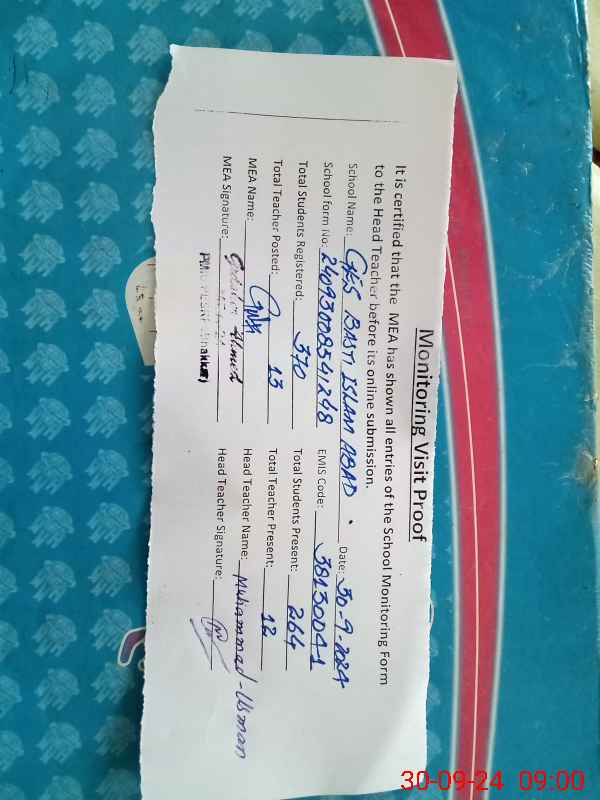 Monitoring Visit Proof
It is certified that the MEA has shown all entries of the School Monitoring Form
to the Head Teacher before its online submission.
School Name: GES BAST ISLAM ABAD. Date: 30-9-2024
School form No: 24093008541248 EMIS Code: 38130041
Total Students Registered: 370 Total Students Present: 264
Total Teacher Posted: 13 Total Teacher Present: 12
MEA Name: Head Teacher Name: Muhammad-Usman
MEA Signature: Ahmed Head Teacher Signature:
30-09-24 09:00